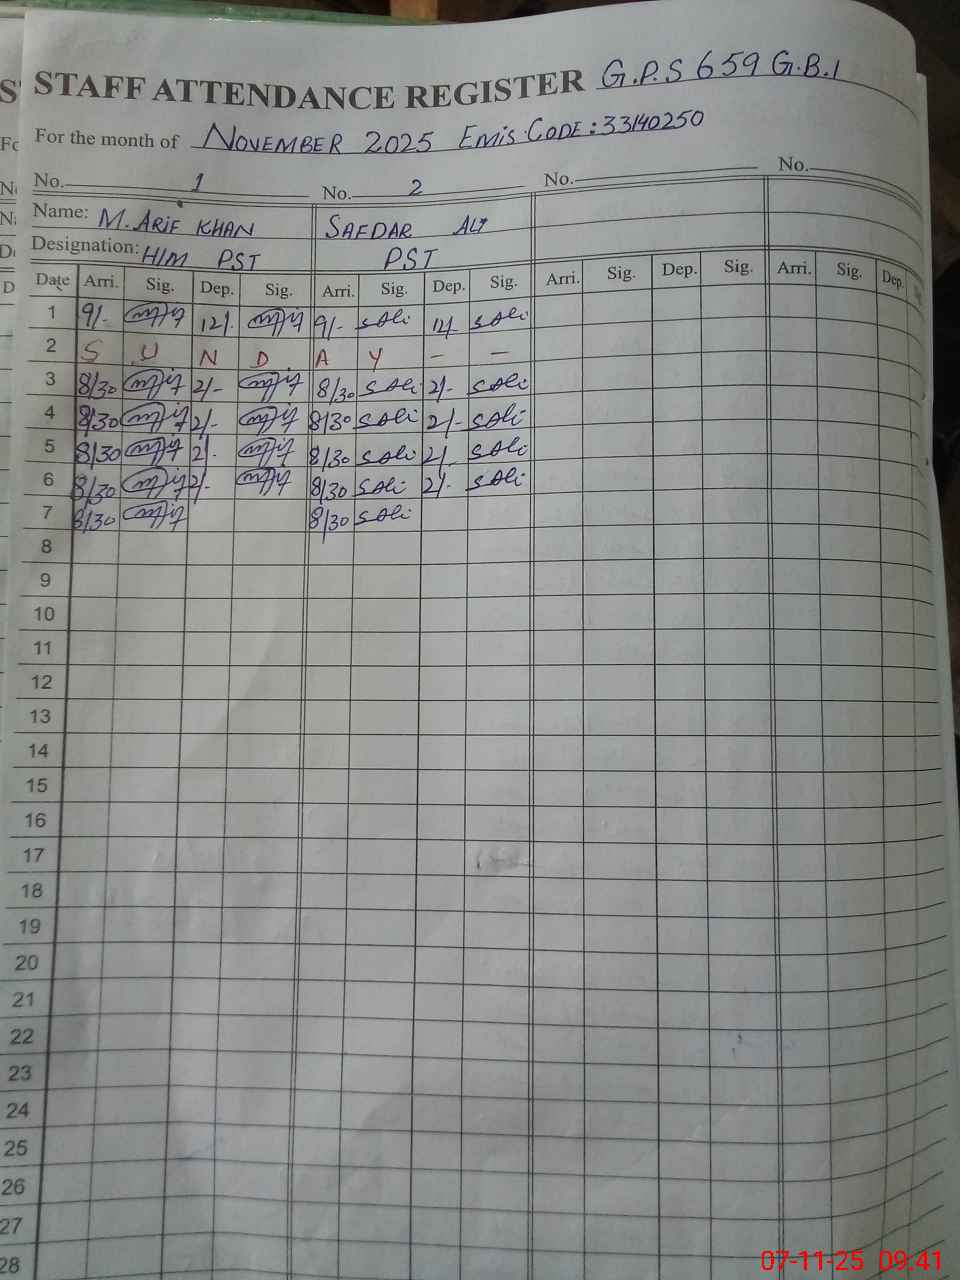 STAFF ATTENDANCE REGISTER G.P.S 659 G.B.I
For the month of NOVEMBER 2025 EMIS CODE: 33140250
No. 1 No. 2 No. No.
Name: M. ARIF KHAN SAFDAR ALI
Designation: H/M PST PST
Date Arri. Sig. Dep. Sig. Arri. Sig. Dep. Sig. Arri. Sig. Dep. Sig. Arri. Sig. Dep.
1 9/- 12/- 9/- SAli 12/- SAli
2 S U N D A Y - -
3 8/30 2/- 8/30 SAli 2/- SAli
4 8/30 2/- 8/30 SAli 2/- SAli
5 8/30 2/- 8/30 SAli 2/- SAli
6 8/30 2/- 8/30 SAli 2/- SAli
7 8/30 8/30 SAli
8
9
10
11
12
13
14
15
16
17
18
19
20
21
22
23
24
25
26
27
28
07-11-25 09:41